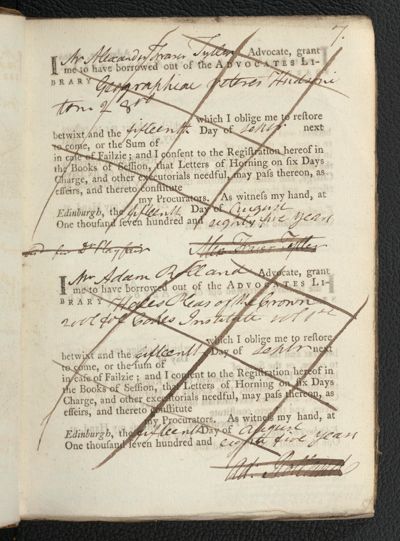 7.
I Mr Alexander Fraser Tytler Advocate, grant
me to have borrowed out of the ADVOCATES LI-
BRARY Geographiae Veteris Hudsoni
tom 4 8vo
which I oblige me to restore
betwixt and the fifteenth Day of Sepbr next
to come, or the Sum of
in case of Failzie; and I consent to the Registration hereof in
the Books of Session, that Letters of Horning on six Days
Charge, and other executorials needful, may pass thereon, as
effeirs, and thereto constitute
my Procurators. As witness my hand, at
Edinburgh, the fifteenth Day of August
One thousand seven hundred and eighty five years
for Dr Playfair
Alex Fraser Tytler
I Mr Adam Rolland Advocate, grant
me to have borrowed out of the ADVOCATES LI-
BRARY Hales Pleas of the Crown
2 vol fol Cokes Institute vol 1st
which I oblige me to restore
betwixt and the fifteenth Day of Sepbr next
to come, or the sum of
in case of Failzie; and I consent to the Registration hereof in
the Books of Session, that Letters of Horning on six Days
Charge, and other executorials needful, may pass thereon, as
effeirs, and thereto constitute
my Procurators. As witness my hand, at
Edinburgh, the fifteenth Day of August
One thousand seven hundred and eighty five years
Ad: Rolland